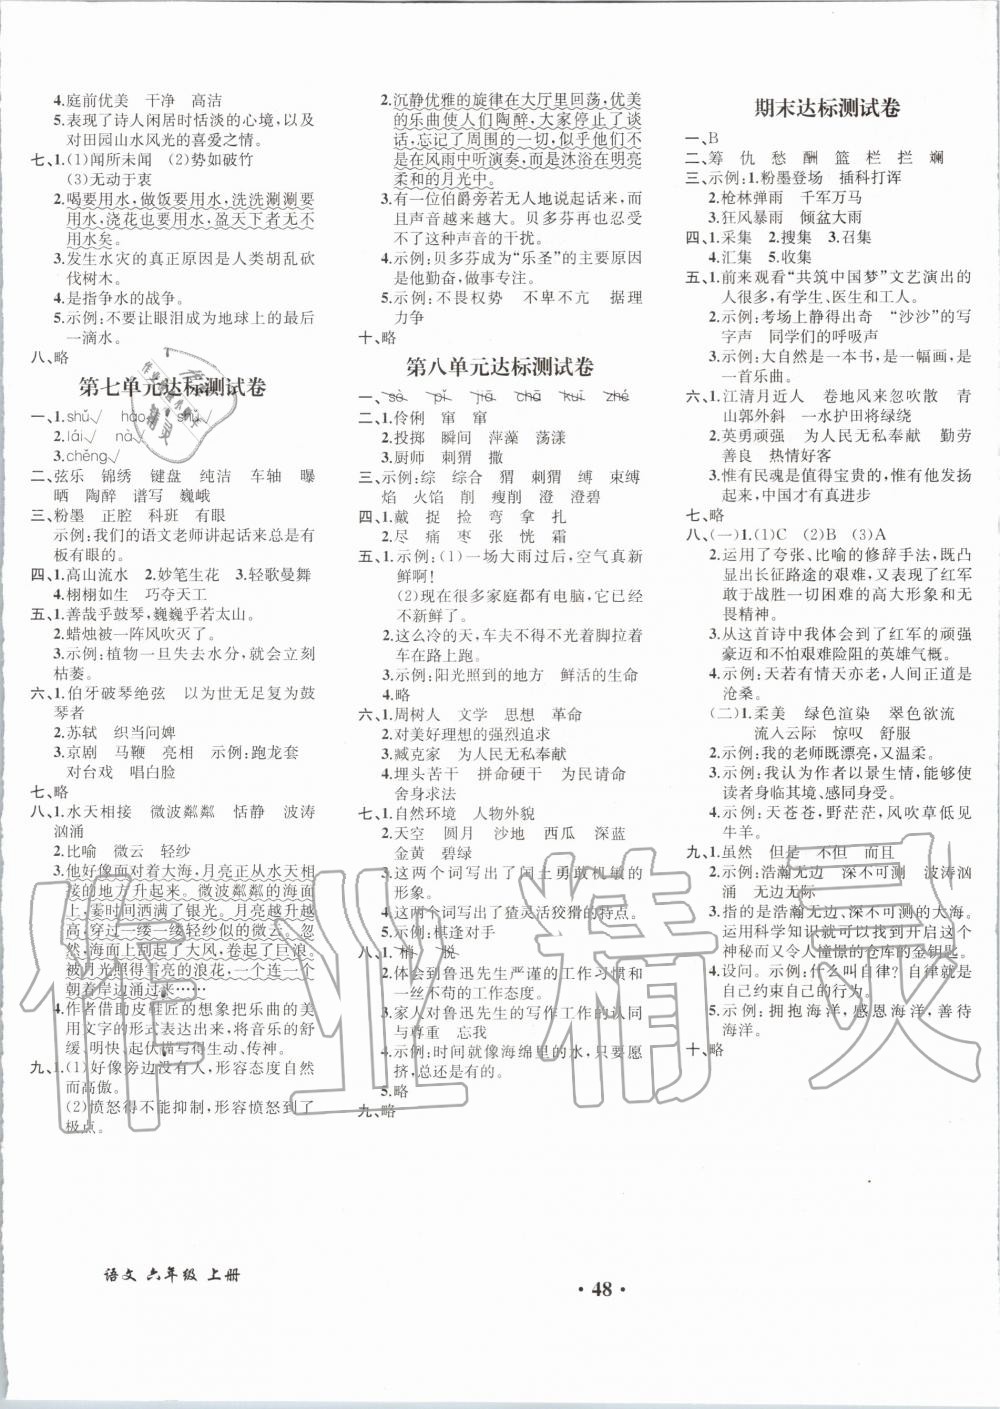 4.庭前优美 干净 高洁
5.表现了诗人闲居时恬淡的心境,以及
对田园山水风光的喜爱之情。
七、1.(1)闻所未闻 (2)势如破竹
(3)无动于衷
2.喝要用水,做饭要用水,洗洗涮涮要
用水,浇花也要用水,盈天下者无一
不用水矣。
3.发生水灾的真正原因是人类胡乱砍
伐树木。
4.是指争水的战争。
5.示例:不要让眼泪成为地球上的最后
一滴水。
八、略
第七单元达标测试卷
一、1.shǔ√ hào shù√
2.lái√ nà√
3.chēng√
二、弦乐 锦绣 键盘 纯洁 车轴 曝
晒 陶醉 谱写 巍峨
三、粉墨 正腔 科班 有眼
示例:我们的语文老师讲起话来总是有
板有眼的。
四、1.高山流水 2.妙笔生花 3.轻歌曼舞
4.栩栩如生 巧夺天工
五、1.善哉乎鼓琴,巍巍乎若太山。
2.蜡烛被一阵风吹灭了。
3.示例:植物一旦失去水分,就会立刻
枯萎。
六、1.伯牙破琴绝弦 以为世无足复为鼓
琴者
2.苏轼 织当问婢
3.京剧 马鞭 亮相 示例:跑龙套
对台戏 唱白脸
七、略
八、1.水天相接 微波粼粼 恬静 波涛
汹涌
2.比喻 微云 轻纱
3.他好像面对着大海,月亮正从水天相
接的地方升起来。微波粼粼的海面
上,霎时间洒满了银光。月亮越升越
高,穿过一缕一缕轻纱似的微云。忽
然,海面上刮起了大风,卷起了巨浪。
被月光照得雪亮的浪花,一个连一个
朝着岸边涌过来……
4.作者借助皮鞋匠的想象把乐曲的美
用文字的形式表达出来,将音乐的舒
缓、明快、起伏描写得生动、传神。
九、1.(1)好像旁边没有人,形容态度自然
而高傲。
(2)愤怒得不能抑制,形容愤怒到了
极点。
2.沉静优雅的旋律在大厅里回荡,优美
的乐曲使人们陶醉,大家停止了谈
话,忘记了周围的一切,似乎不是
在风雨中听演奏,而是沐浴在明亮
柔和的月光中。
3.有一位伯爵旁若无人地说起话来,而
且声音越来越大。贝多芬再也忍受不
了这种声音的干扰。
4.示例:贝多芬被称为“乐圣”的原因是
他勤奋,做事专注。
5.示例:不畏权势 不卑不亢 据理
力争
十、略
第八单元达标测试卷
一、sè pǐ jiā chā kuì zhé
2.伶俐 窜 窜
2.投掷 瞬间 萍藻 荡漾
3.厨师 刺猬 撒
三、示例:综 综合 猬 刺猬 缚 束缚
焰 火焰 削 瘦削 澄 澄碧
四、1.戴 捉 捡 弯 拿 扎
2.尽 痛 枣 张 恍 霜
五、1.示例:(1)一场大雨过后,空气真新
鲜啊!
(2)现在很多家庭都有电脑,它已经
不新鲜了。
2.这么冷的天,车夫不得不光着脚拉着
车在路上跑。
3.示例:阳光照到的地方 鲜活的生命
4.略
六、1.周树人 文学 思想 革命
2.对美好理想的强烈追求
3.臧克家 为人民无私奉献
4.埋头苦干 拼命硬干 为民请命
舍身求法
七、1.自然环境 人物外貌
2.天空 圆月 沙地 西瓜 深蓝
金黄 碧绿
3.这两个词写出了闰土勇敢机敏的
形象。
4.这两个词写出了猹灵活狡猾的特点。
5.示例:棋逢对手
八、1.梢 脱
2.体会到鲁迅先生严谨的工作习惯和
一丝不苟的工作态度。
3.家人对鲁迅先生的写作工作的认同
与尊重 忘我
4.示例:时间就像海绵里的水,只要愿
挤,总还是有的。
5.略
九、略
期末达标测试卷
一、B
二、筹 仇 愁 酬 篮 栏 拦 斓
三、示例:1.粉墨登场 插科打诨
2.枪林弹雨 千军万马
3.狂风暴雨 倾盆大雨
四、1.采集 2.搜集 3.召集
4.汇集 5.收集
五、1.前来观看“共筑中国梦”文艺演出的
人很多,有学生、医生和工人。
2.示例:考场上静得出奇 “沙沙”的写
字声 同学们的呼吸声
3.示例:大自然是一本书,是一幅画,是
一首乐曲。
六、1.江清月近人 卷地风来忽吹散 青
山郭外斜 一水护田将绿绕
2.英勇顽强 为人民无私奉献 勤劳
善良 热情好客
3.惟有民魂是值得宝贵的,惟有他发扬
起来,中国才有真进步
七、略
八、(一)1.(1)C (2)B (3)A
2.运用了夸张、比喻的修辞手法,既凸
显出长征路途的艰难,又表现了红军
敢于战胜一切困难的高大形象和无
畏精神。
3.从这首诗中我体会到了红军的顽强
豪迈和不怕艰难险阻的英雄气概。
4.示例:天若有情天亦老,人间正道是
沧桑。
(二)1.柔美 绿色渲染 翠色欲流
流入云际 惊叹 舒服
2.示例:我的老师既漂亮,又温柔。
3.示例:我认为作者以景生情,能够使
读者身临其境、感同身受。
4.示例:天苍苍,野茫茫,风吹草低见
牛羊。
九、1.虽然 但是 不但 而且
2.示例:浩瀚无边 深不可测 波涛汹
涌 无边无际
3.指的是浩瀚无边、深不可测的大海。
运用科学知识就可以打开这个
神秘而又令人憧憬的仓库的金钥匙。
4.设问。示例:什么叫自律?自律就是
自己约束自己的行为。
5.示例:拥抱海洋,感恩海洋,善待
海洋。
十、略
语文 六年级 上册
· 48 ·
作业精灵